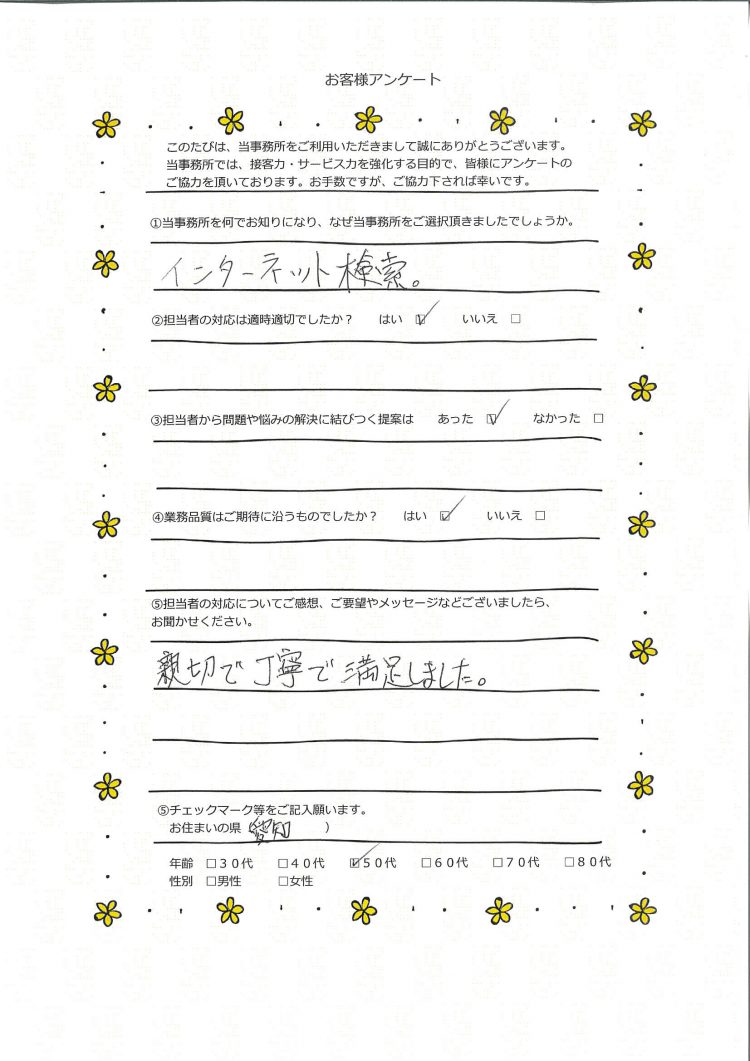 お客様アンケート
このたびは、当事務所をご利用いただきまして誠にありがとうございます。
当事務所では、接客力・サービス力を強化する目的で、皆様にアンケートの
ご協力を頂いております。お手数ですが、ご協力下されば幸いです。
①当事務所を何でお知りになり、なぜ当事務所をご選択頂きましたでしょうか。
インターネット検索。
②担当者の対応は適時適切でしたか？　はい ☑　いいえ □
③担当者から問題や悩みの解決に結びつく提案は　あった ☑　なかった □
④業務品質はご期待に沿うものでしたか？　はい ☑　いいえ □
⑤担当者の対応についてご感想、ご要望やメッセージなどございましたら、
お聞かせください。
親切で丁寧で満足しました。
⑤チェックマーク等をご記入願います。
お住まいの県（愛知　）
年齢　□３０代　□４０代　☑５０代　□６０代　□７０代　□８０代
性別　□男性　□女性